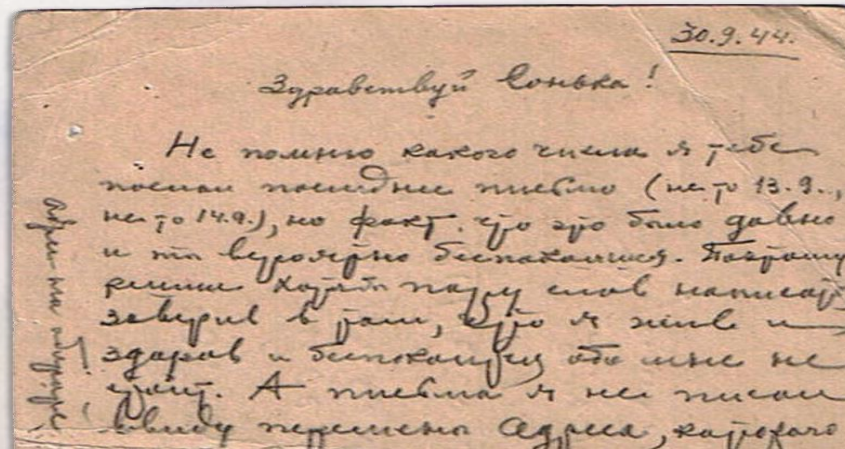 30.9.44.
Здравствуй Сонька!
Не помню какого числа я тебе
послал последнее письмо (не то 13.9.,
не то 14.9.), но факт что это было давно
и ты вероятно беспокоишся. Поэтому
решил хотябы пару слов написать
заверив в том, что я жив и
здоров и беспокоиться обо мне не
стоит. А письма я не писал
ввиду перемены адреса, которого